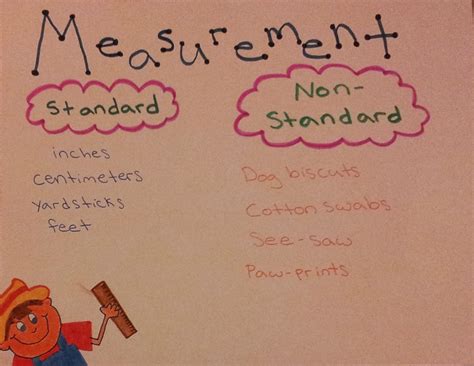 Measurement
Standard
inches
centimeters
yardsticks
feet
Non-
Standard
Dog biscuts
Cotton swabs
See-saw
Paw-prints